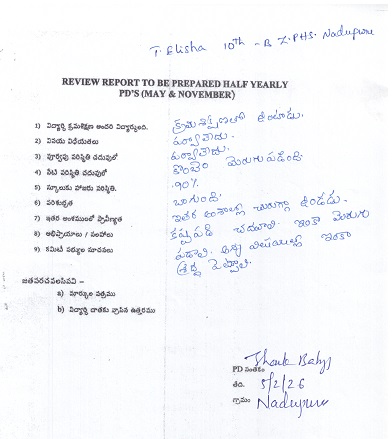 T. Elisha 10th - B Z.P.HS. Nadupuru
REVIEW REPORT TO BE PREPARED HALF YEARLY
PD'S (MAY & NOVEMBER)
1) విద్యార్థి క్రమశిక్షణ అందరి విద్యార్థులది. క్రమశిక్షణలో ఉంటాడు.
2) వినయ విధేయతలు పర్వాలేదు.
3) పూర్వపు పరిస్థితి చదువులో పర్వాలేదు.
4) నేటి పరిస్థితి చదువులో కొంచెం మెరుగుపడింది.
5) స్కూలుకు హాజరు పరిస్థితి. 90%
6) పరిశుభ్రత బాగుంది.
7) ఇతర అంశములలో ప్రావీణ్యత ఇతర అంశాలల్లో చురుగ్గా ఉండడు.
8) అభిప్రాయాలు / సలహాలు కష్టపడి చదవాలి. ఇంకా మెరుగు
9) కమిటీ సభ్యుల సూచనలు పడాలి. అన్ని విషయాల్లో ఇంకా
శ్రద్ధ పెట్టాలి.
జతపరచవలసినవి -
a) మార్కుల పత్రము
b) విద్యార్థి దాతకు వ్రాసిన ఉత్తరము
PD సంతకం
తేది. 5/2/26
గ్రామం Nadupuru